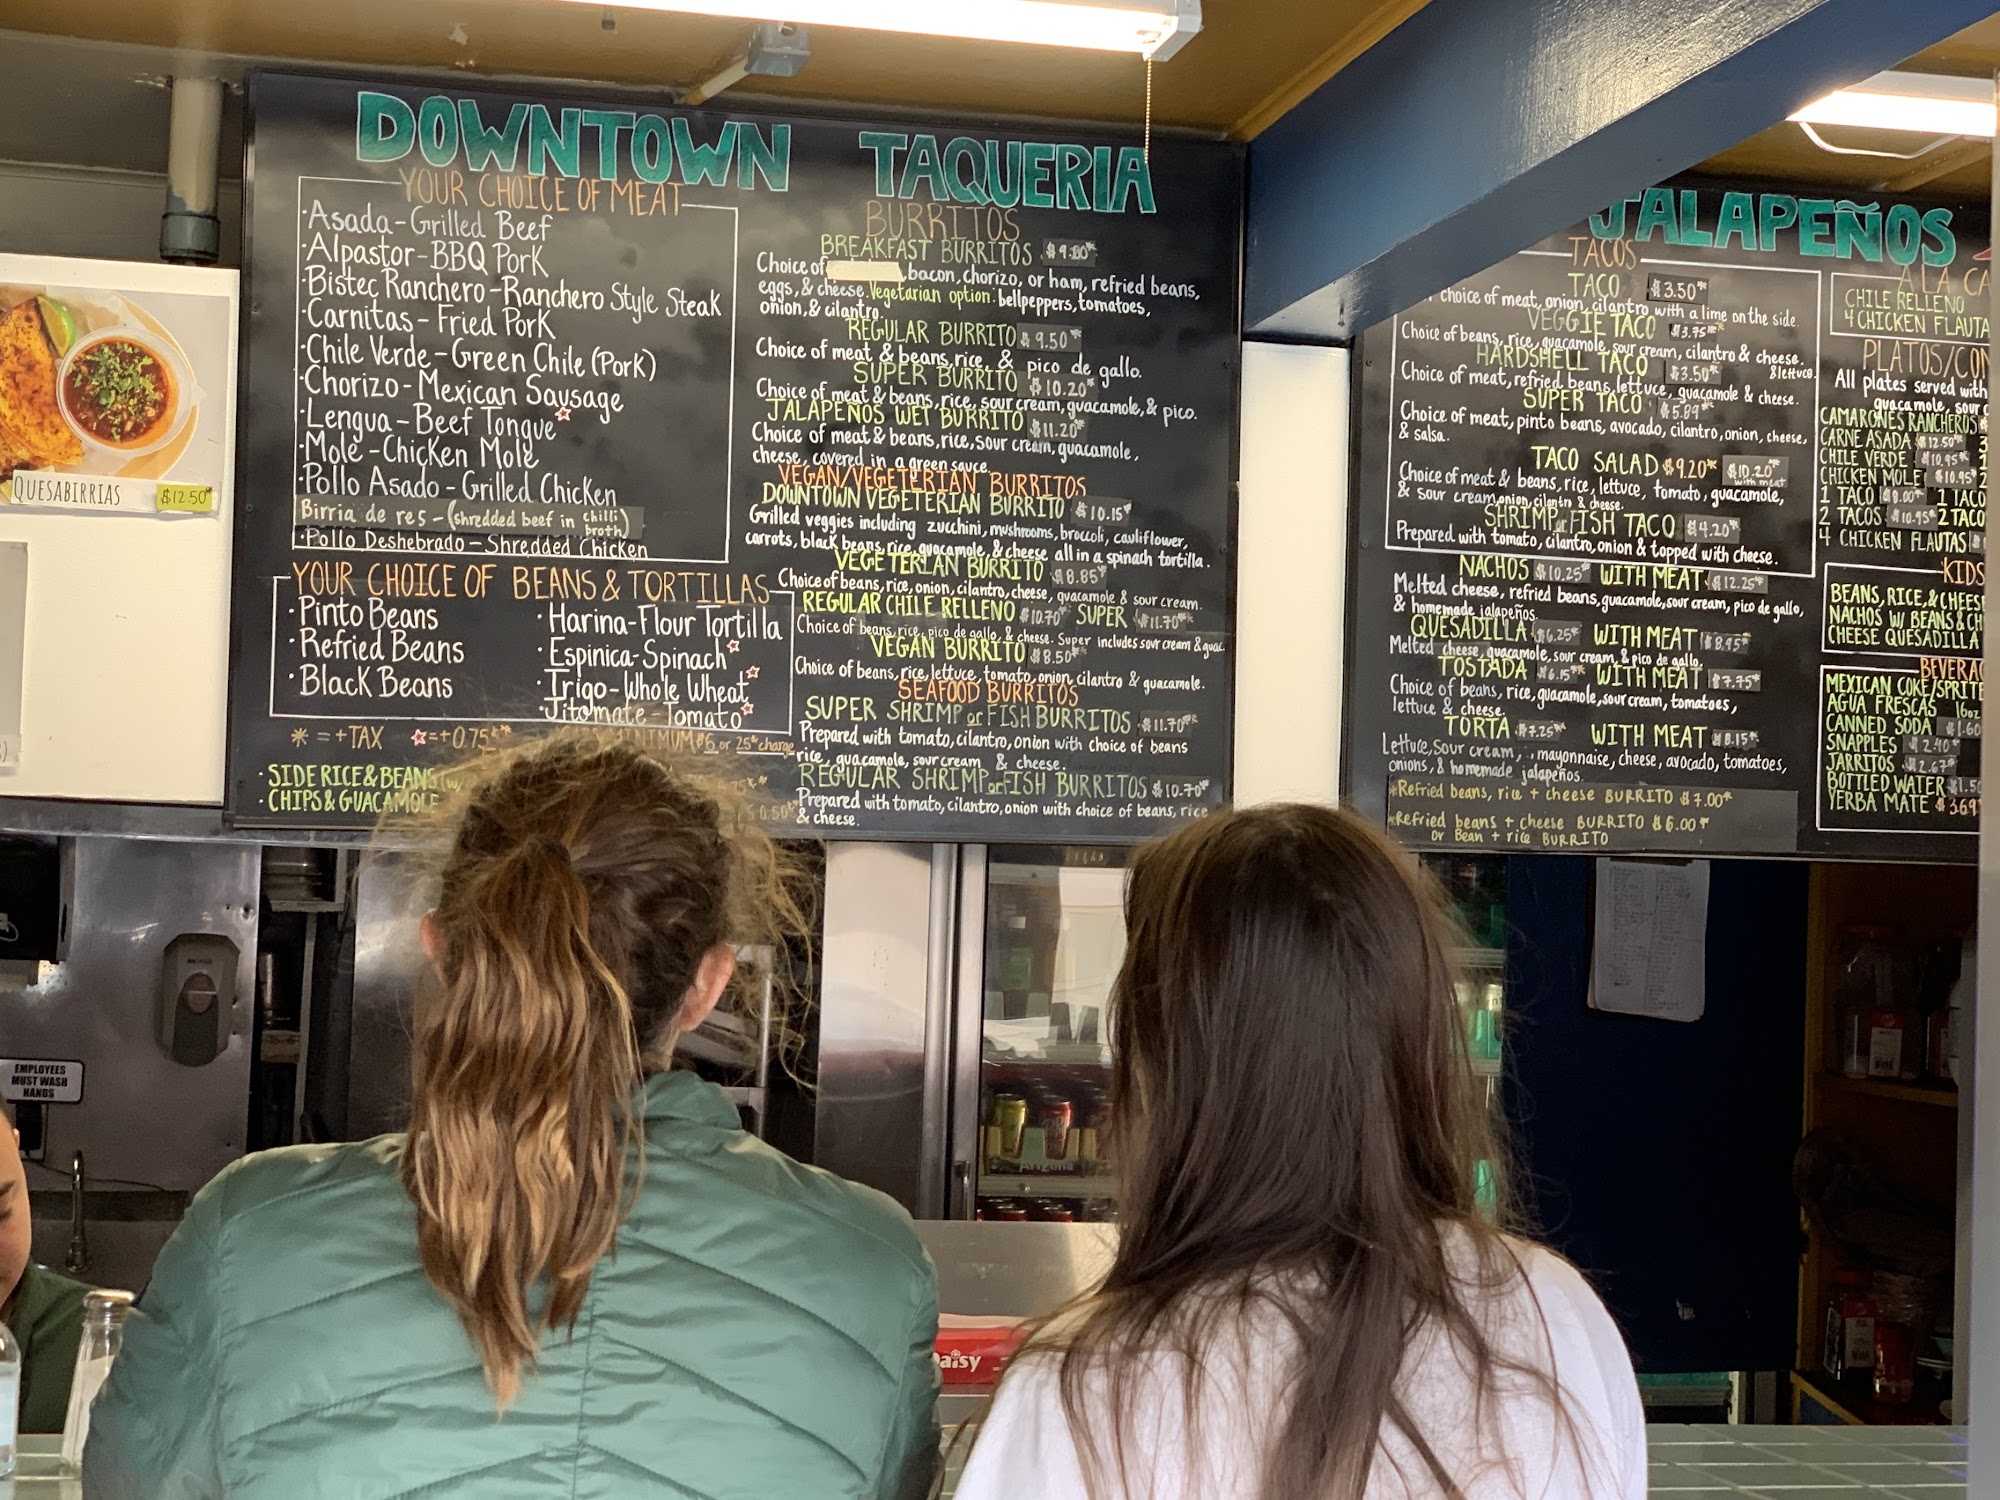 DOWNTOWN TAQUERIA
YOUR CHOICE OF MEAT
·Asada-Grilled Beef
·Alpastor-BBQ Pork
·Bistec Ranchero-Ranchero Style Steak
·Carnitas-Fried Pork
·Chile Verde-Green Chile (Pork)
·Chorizo-Mexican Sausage
·Lengua-Beef Tongue☆
·Mole-Chicken Mole
·Pollo Asado-Grilled Chicken
Birria de res-(shredded beef in chilli broth)
·Pollo Deshebrado-Shredded Chicken
YOUR CHOICE OF BEANS & TORTILLAS
·Pinto Beans
·Refried Beans
·Black Beans
·Harina-Flour Tortilla
·Espinica-Spinach☆
·Trigo-Whole Wheat☆
·Jitomate-Tomato☆
* = +TAX ☆=+0.75¢*
MINIMUM $6 or 25* charge
·SIDE RICE & BEANS
·CHIPS & GUACAMOLE
BURRITOS
BREAKFAST BURRITOS
Choice of bacon, chorizo, or ham, refried beans,
eggs, & cheese. Vegetarian option: bellpeppers, tomatoes,
onion, & cilantro.
REGULAR BURRITO $9.50*
Choice of meat & beans, rice, & pico de gallo.
SUPER BURRITO $10.20*
Choice of meat & beans, rice, sour cream, guacamole, & pico.
JALAPEÑOS WET BURRITO $11.20*
Choice of meat & beans, rice, sour cream, guacamole,
cheese, covered in a green sauce.
VEGAN/VEGETERIAN BURRITOS
DOWNTOWN VEGETERIAN BURRITO $10.15*
Grilled veggies including zucchini, mushrooms, broccoli, cauliflower,
carrots, black beans, rice, guacamole, & cheese all in a spinach tortilla.
VEGETERIAN BURRITO $8.85*
Choice of beans, rice, onion, cilantro, cheese, guacamole & sour cream.
REGULAR CHILE RELLENO $10.70* SUPER $11.70*
Choice of beans, rice, pico de gallo, & cheese. Super includes sour cream & guac.
VEGAN BURRITO $8.50*
Choice of beans, rice, lettuce, tomato, onion, cilantro & guacamole.
SEAFOOD BURRITOS
SUPER SHRIMP or FISH BURRITOS $11.70*
Prepared with tomato, cilantro, onion with choice of beans
rice, guacamole, sour cream & cheese.
REGULAR SHRIMP or FISH BURRITOS $10.70*
Prepared with tomato, cilantro, onion with choice of beans, rice
& cheese.
JALAPEÑOS
TACOS
TACO $3.50*
choice of meat, onion, cilantro with a lime on the side.
VEGGIE TACO $3.75*
Choice of beans, rice, guacamole, sour cream, cilantro & cheese.
& lettuce.
HARDSHELL TACO $3.50*
Choice of meat, refried beans, lettuce, guacamole & cheese.
SUPER TACO $5.89*
Choice of meat, pinto beans, avocado, cilantro, onion, cheese,
& salsa.
TACO SALAD $9.20* $10.20* with meat
Choice of meat & beans, rice, lettuce, tomato, guacamole,
& sour cream, onion, cilantro & cheese.
SHRIMP or FISH TACO $4.20*
Prepared with tomato, cilantro, onion & topped with cheese.
NACHOS $10.25* WITH MEAT $12.25*
Melted cheese, refried beans, guacamole, sour cream, pico de gallo,
& homemade jalapeños.
QUESADILLA $6.25* WITH MEAT $8.95*
Melted cheese, guacamole, sour cream, & pico de gallo.
TOSTADA $6.15* WITH MEAT $7.75*
Choice of beans, rice, guacamole, sour cream, tomatoes,
lettuce & cheese.
TORTA $7.25* WITH MEAT $8.15*
Lettuce, sour cream, mayonnaise, cheese, avocado, tomatoes,
onions, & homemade jalapeños.
*Refried beans, rice + cheese BURRITO $7.00*
*Refried beans + cheese BURRITO $6.00*
or Bean + rice BURRITO
A LA CA
CHILE RELLENO
4 CHICKEN FLAUTA
PLATOS/CO
All plates served with
guacamole, sour
CAMARONES RANCHEROS
CARNE ASADA $12.50*
CHILE VERDE $10.95*
CHICKEN MOLE $10.95*
1 TACO $8.00* 1 TACO
2 TACOS $10.95* 2 TACO
4 CHICKEN FLAUTAS
KIDS
BEANS, RICE, & CHEESE
NACHOS W/ BEANS & CH
CHEESE QUESADILLA
BEVERA
MEXICAN COKE/SPRITE
AGUA FRESCAS 16oz
CANNED SODA $1.60
SNAPPLES $2.40*
JARRITOS $2.67*
BOTTLED WATER $1.50
YERBA MATE $3.69
QUESABIRRIAS $12.50*
EMPLOYEES
MUST WASH
HANDS
Arizona
Daisy